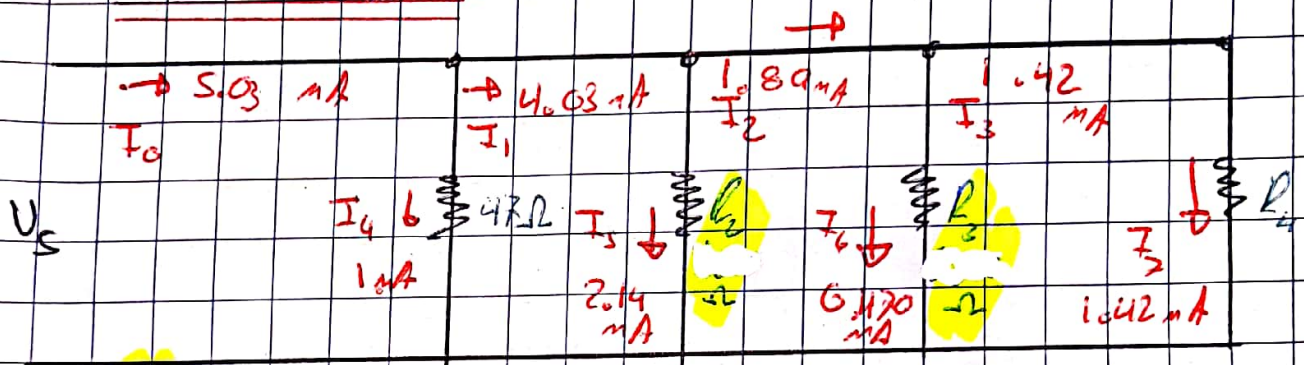 → 5.03 mA
I₀
→ 4.03 mA
I₁
→
1.89 mA
I₂
1.42 mA
I₃
U_S
I₄ ↓ 47Ω
1 mA
I₅ ↓ R₂
2.14 mA
Ω
I₆ ↓ R₃
0.470 mA
Ω
↓ R₄
1.42 mA